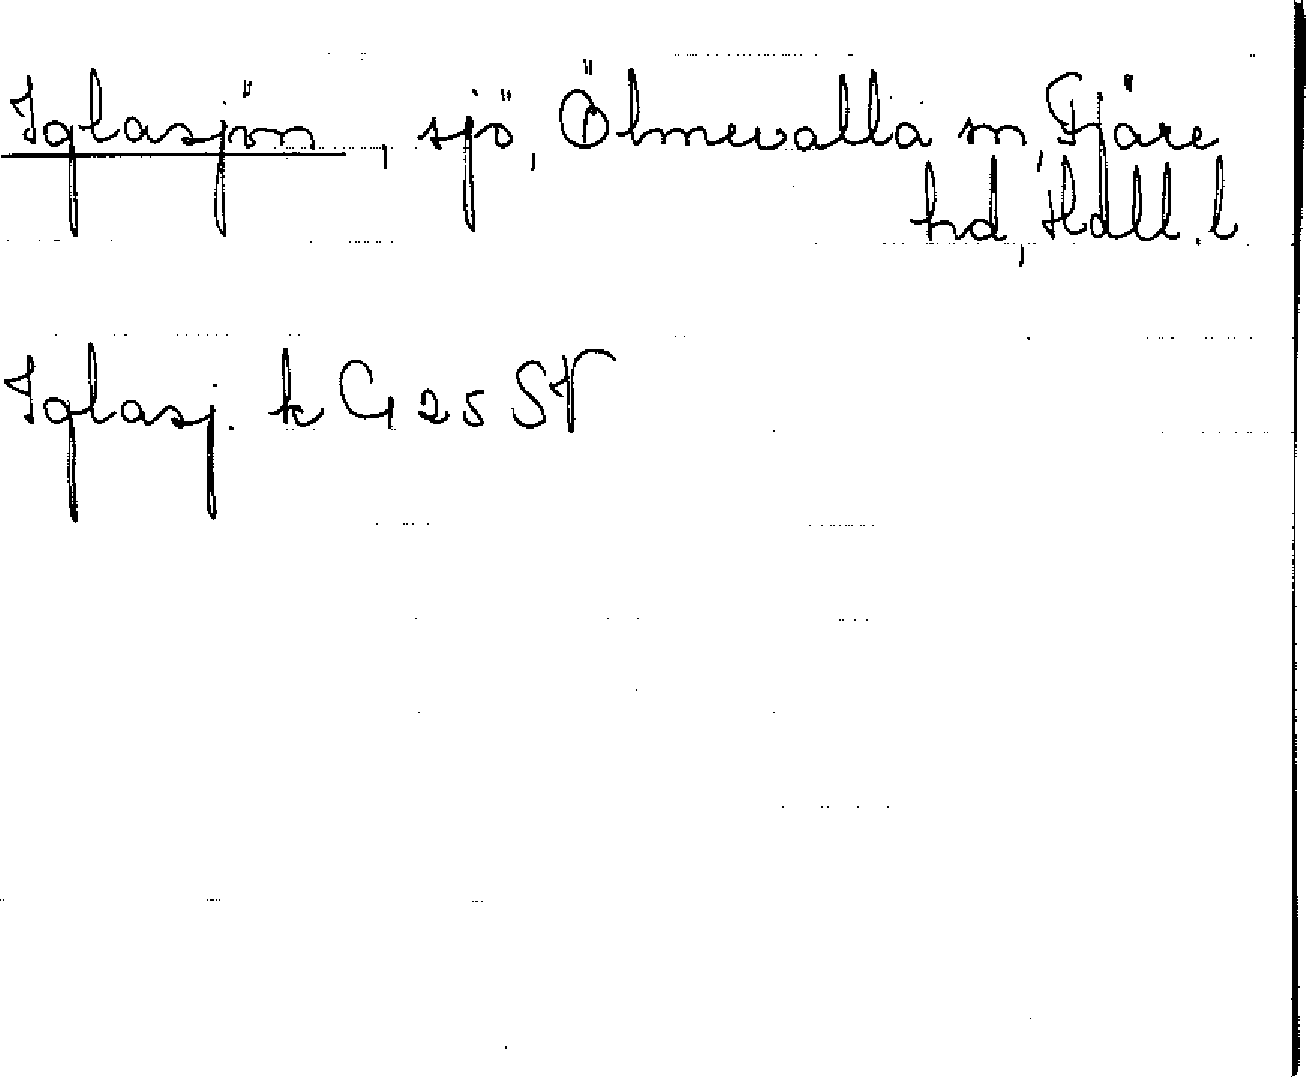 Iglasjön, sjö, Ölmevalla sn, Fjäre
hd, Hall. l
Iglasj. k G 25 SV